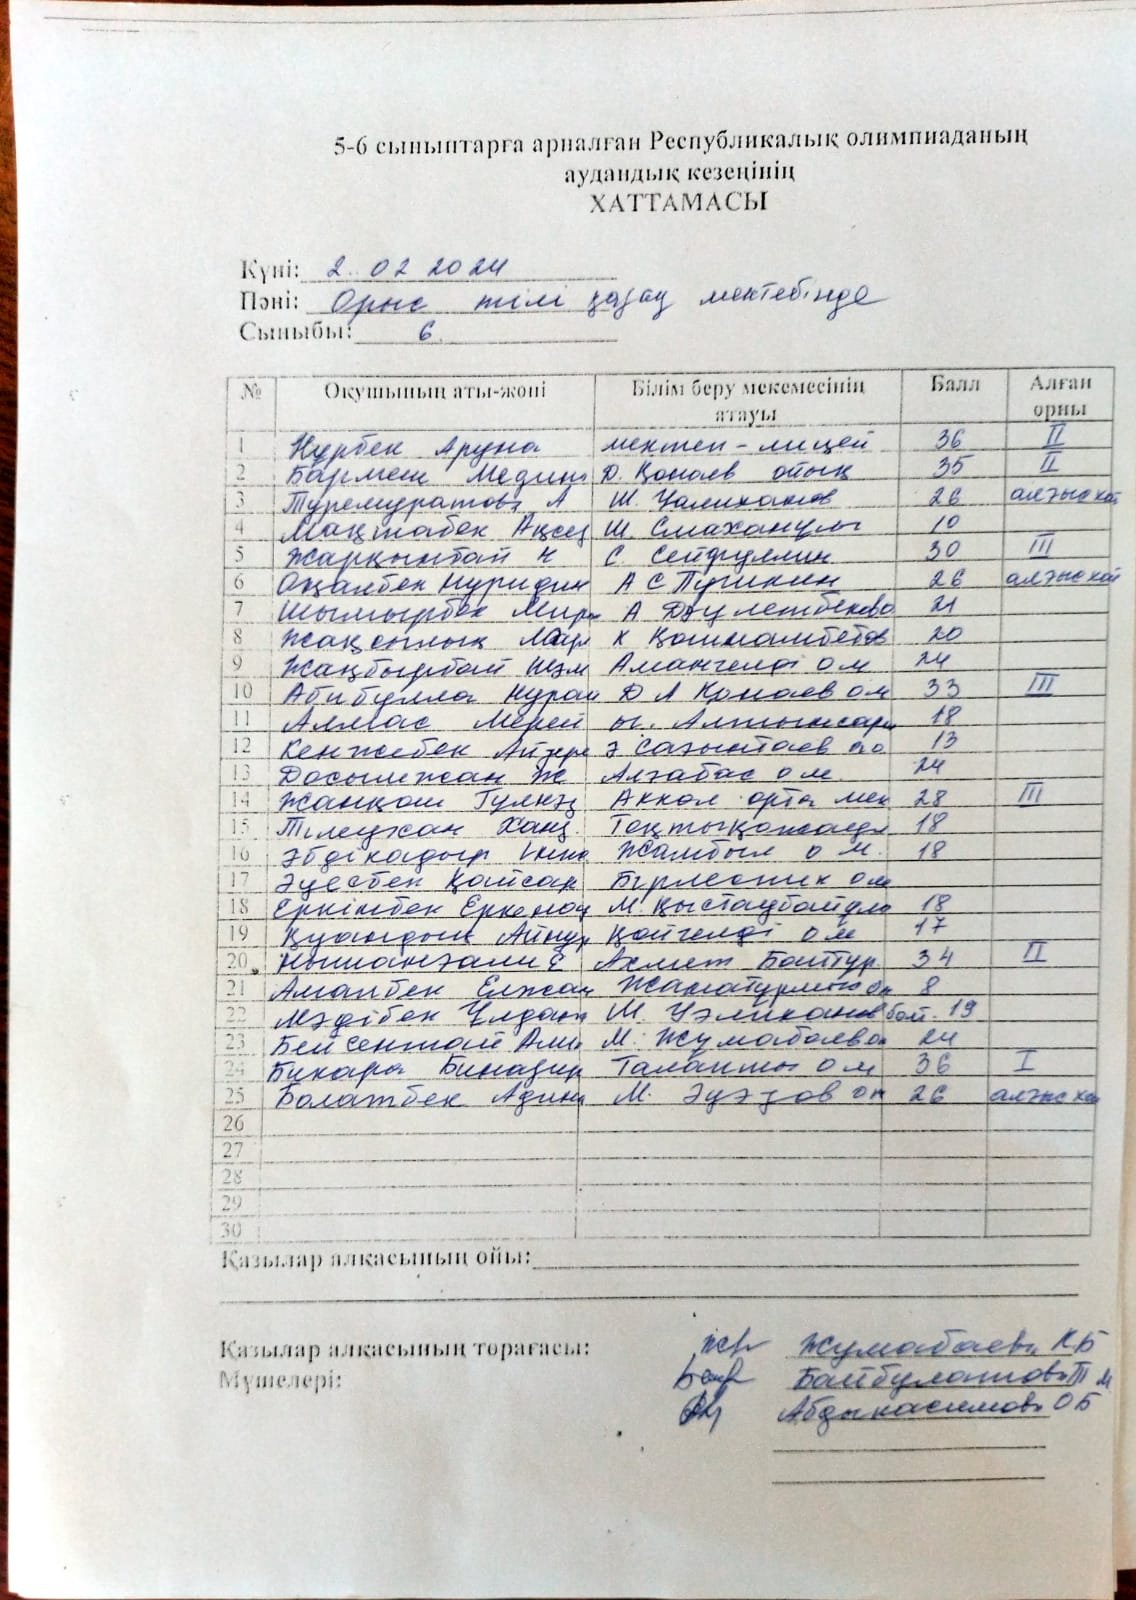 5-6 сыныптарға арналған Республикалық олимпиаданың
аудандық кезеңінің
ХАТТАМАСЫ
Күні: 2. 02 2024
Пәні: Орыс тілі қазақ мектебінде
Сыныбы: 6
№ Оқушының аты-жөні Білім беру мекемесінің атауы Балл Алған орны
1 Нұрбек Аруна мектеп-лицей 36 II
2 Бармен Медин Д. Қонаев 35 II
3 Туремуратова А Ш. Уалиханов 26 алғыс хат
4 Мақтабек Ақсең Ш. Смаханұлы 10
5 Жарқынбай Н С. Сейфуллин 30 III
6 Оңалбек Нуридин А С Пушкин 26 алғыс хат
7 Шымырбек Мира А Дәулетбеков 21
8 Жақсылық К Қошмамбетов 20
9 Жаңбырбай Амангелді о м 24
10 Абибулла Нурай Д А Қонаев о м 33 III
11 Алмас Мерей Ы. Алтынсари 18
12 Кенжебек Ә Сазынтаев 13
13 Досымжан Ж Алғабас о м. 24
14 Жанқош Гулнәз Аккол орта мек 28 III
15 Тілеужан Тоқтықожа 18
16 Әбдікадыр Жамбыл о м. 18
17 Әуесбек Қайсар Бірлестик ом
18 Еркінбек М. Қыстаубайұлы 18
19 Қуандық Айнұр Қойгелді о м 17
20. Нышанғали Е Ахмет Байтур 34 II
21 Аманбек Елжан Жаңатурмыс 8
22 Мәдібек Ұлдана Ш. Уәлиханов 19
23 Бейсенбай М. Жумабаев 24
24 Бихара Биназир Талапты о м 36 I
25 Болатбек Адина М. Әуэзов 26 алғыс хат
26
27
28
29
30
Қазылар алқасының ойы:
Қазылар алқасының төрағасы: Жумабаева К Б
Мүшелері: Байбулатова Т М
Абдыкасимова О Б